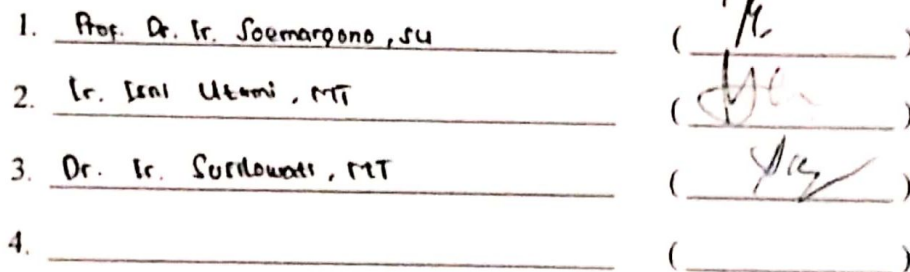 1. Prof. Dr. Ir. Soemargono, SU ( )
2. Ir. Isni Utami, MT ( )
3. Dr. Ir. Susilowati, MT ( )
4. ( )